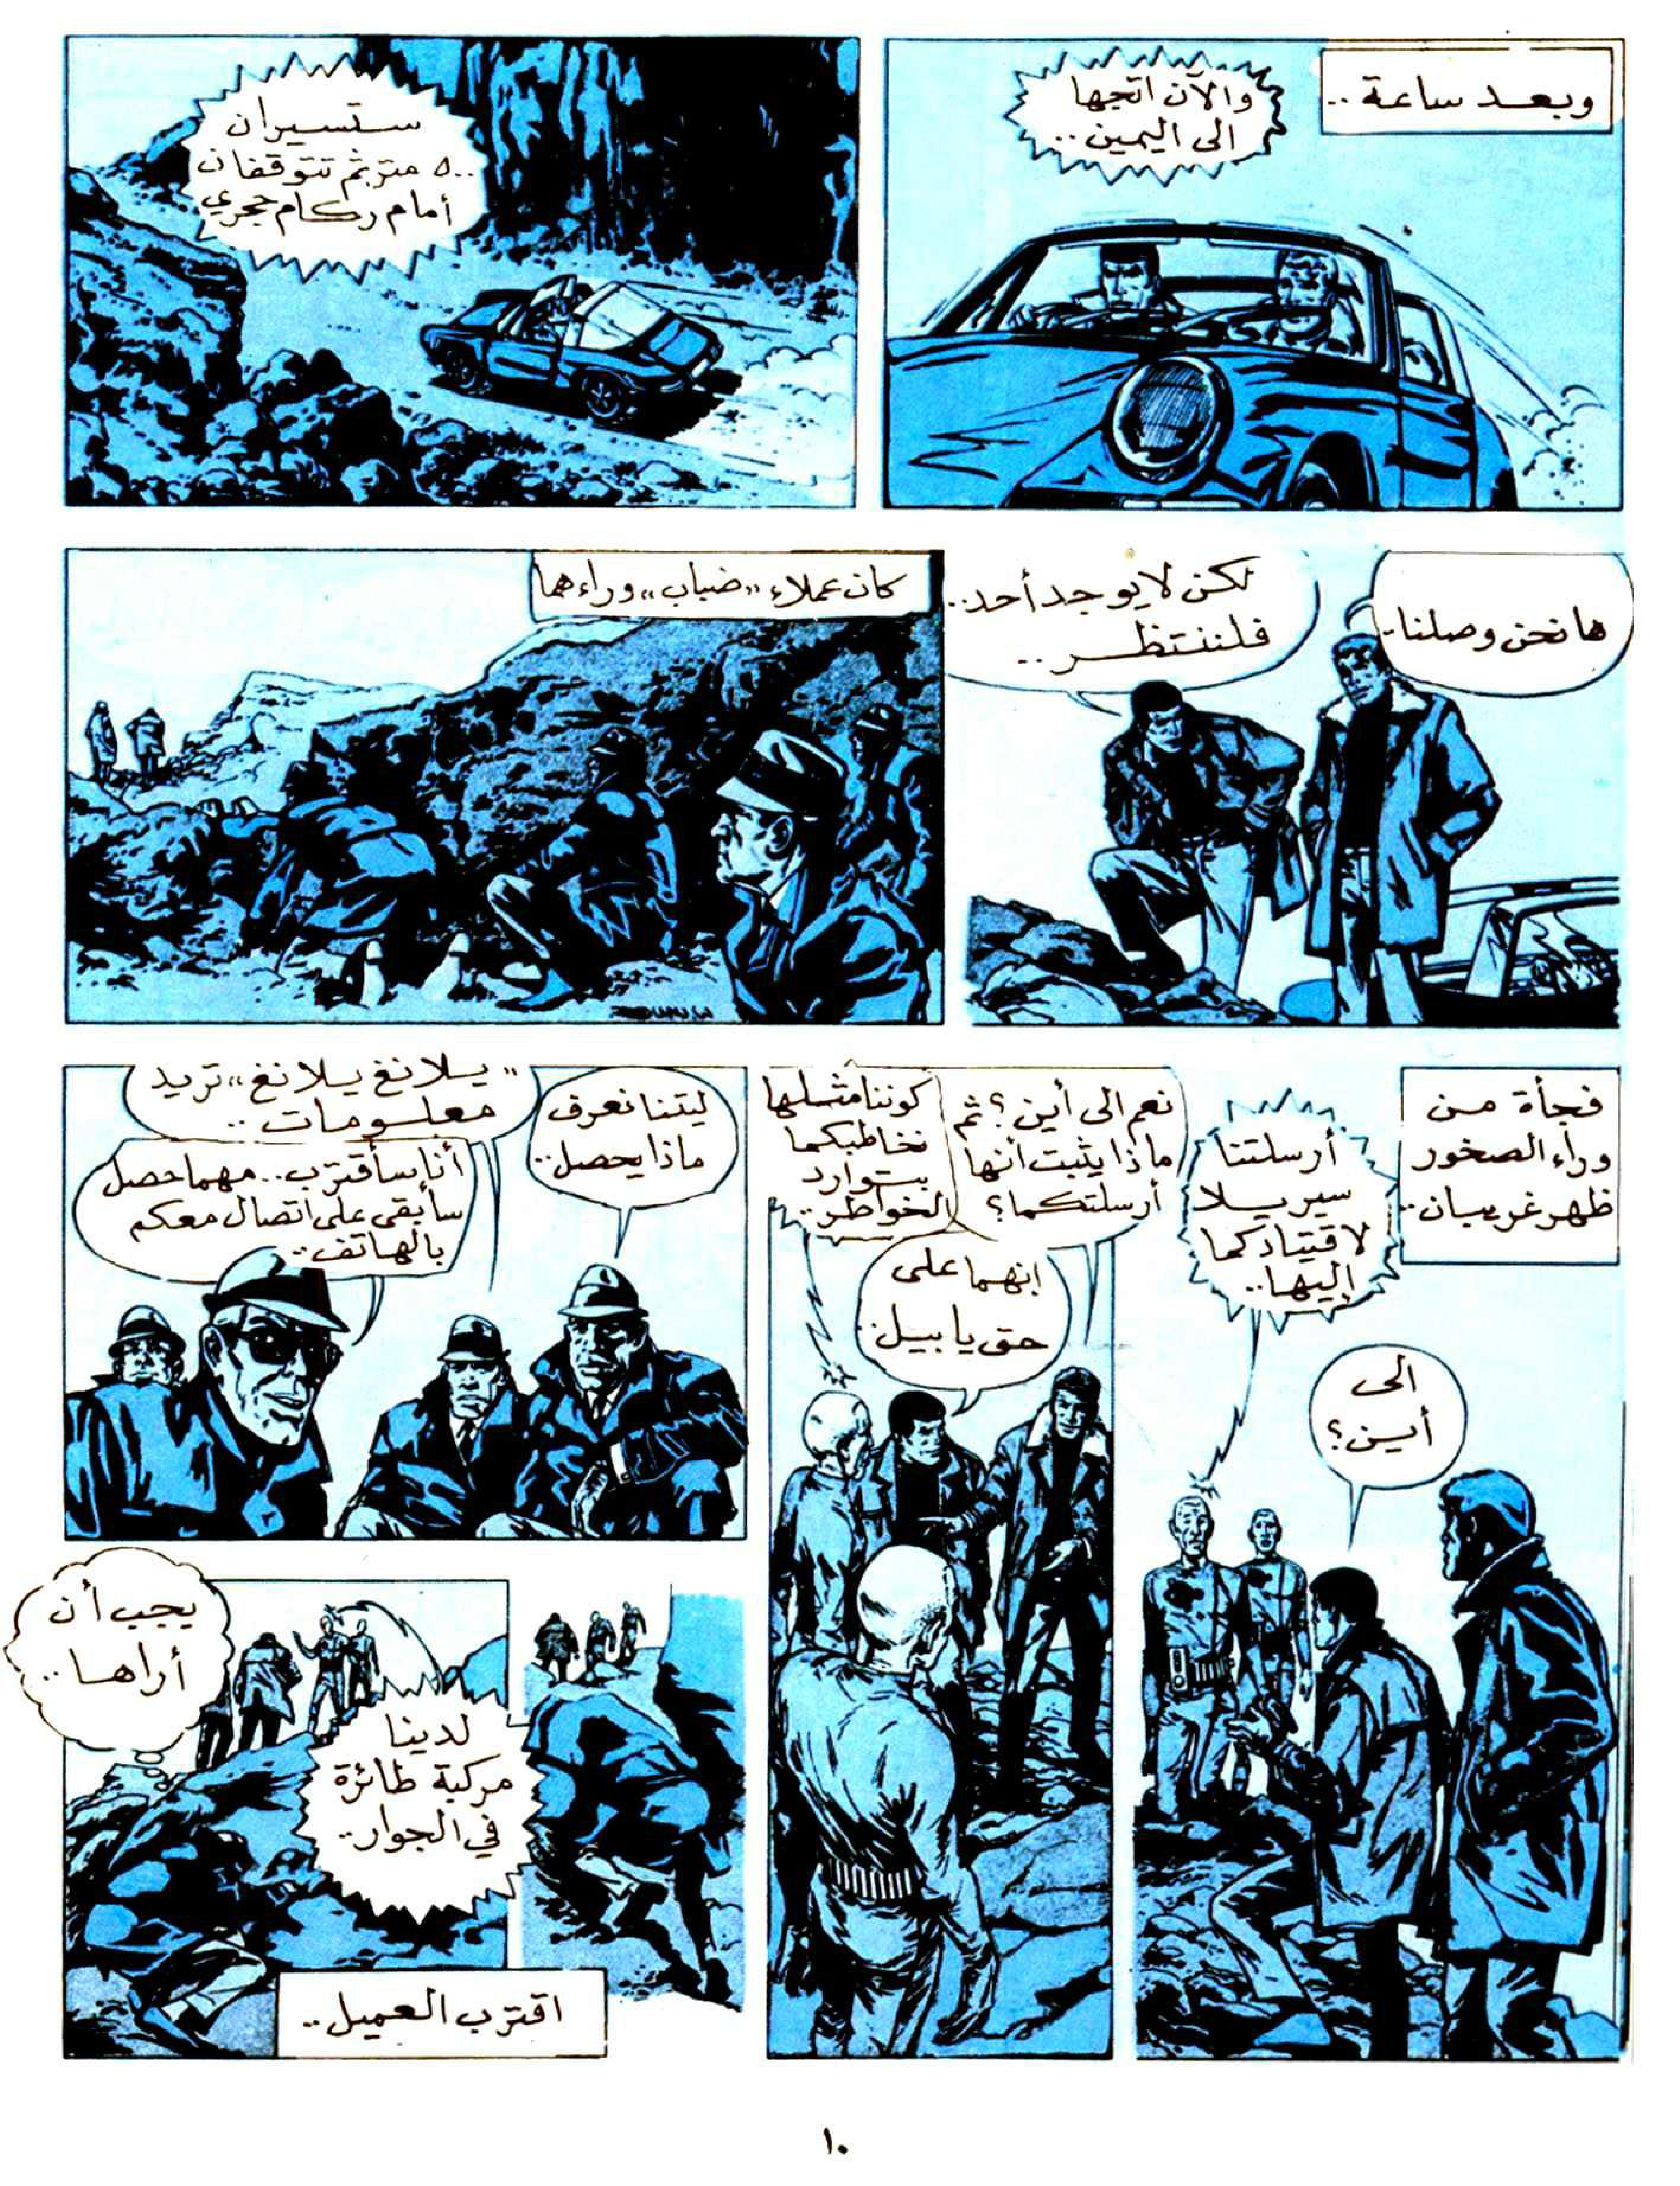 وبعد ساعة ..
والآن اتجها
الى اليمين ..
ستسيران
٥٠٠ متر ثم تتوقفان
أمام ركام حجري
ها نحن وصلنا..
لكن لا يوجد أحد..
فلننتظر ..
كان عملاء "ضباب" وراءهما
فجأة من
وراء الصخور
ظهر غريبان..
أرسلتنا
سيريلا
لاقتيادكما
إليها..
الى
أين؟
نعم الى أين؟ ثم
ماذا يثبت أنها
أرسلتكما؟
كوننا مثلها
نخاطبكما
بتوارد
الخواطر..
إنهما على
حق يا بيل..
ليتنا نعرف
ماذا يحصل..
"يلانغ يلانغ" تريد
معلومات ..
أنا سأقترب.. مهما حصل
سأبقى على اتصال معكم
بالهاتف..
لدينا
مركبة طائرة
في الجوار..
يجب أن
أراها ..
اقترب العميل..
١٠